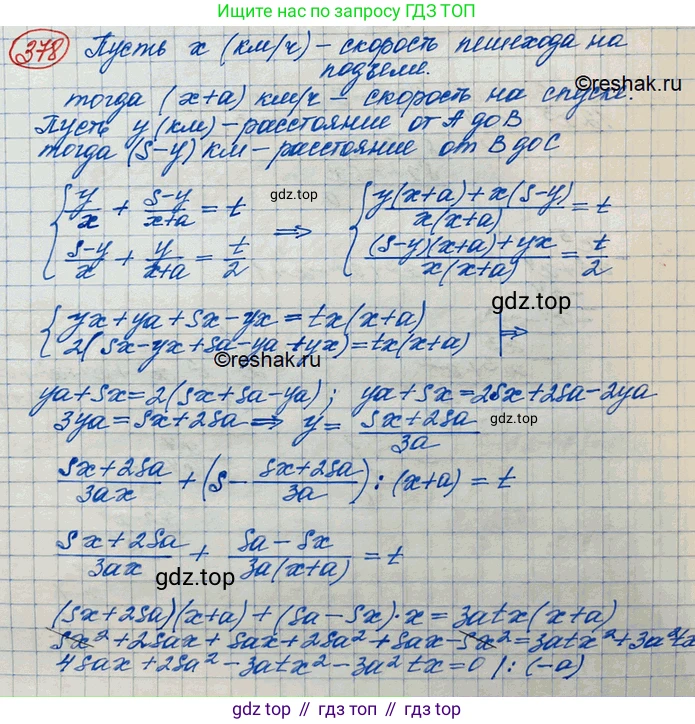 Ищите нас по запросу ГДЗ ТОП
378 Пусть x (км/ч) - скорость пешехода на
подъеме.
©reshak.ru
тогда (x+a) км/ч - скорость на спуске.
Пусть y (км) - расстояние от A до B
тогда (S-y) км - расстояние от B до C
{ y/x + (S-y)/(x+a) = t
gdz.top
{ (S-y)/x + y/(x+a) = t/2
⇒
{ (y(x+a)+x(S-y))/(x(x+a)) = t
{ ((S-y)(x+a)+yx)/(x(x+a)) = t/2
gdz.top
{ yx+ya+Sx-yx=tx(x+a)
{ 2(Sx-yx+Sa-ya+yx)=tx(x+a) ⇒
©reshak.ru
ya+Sx=2(Sx+Sa-ya); ya+Sx=2Sx+2Sa-2ya
3ya=Sx+2Sa ⇒ y= (Sx+2Sa)/3a
gdz.top
(Sx+2Sa)/3ax + (S - (Sx+2Sa)/3a) : (x+a) = t
(Sx+2Sa)/3ax + (Sa-Sx)/(3a(x+a)) = t
gdz.top
(Sx+2Sa)(x+a)+(Sa-Sx)·x=3atx(x+a)
Sx²+2Sax+Sax+2Sa²+Sax-Sx²=3atx²+3a²tx
4Sax+2Sa²-3atx²-3a²tx=0 /:(-a)
gdz.top // гдз.топ // gdz.top // гдз.топ